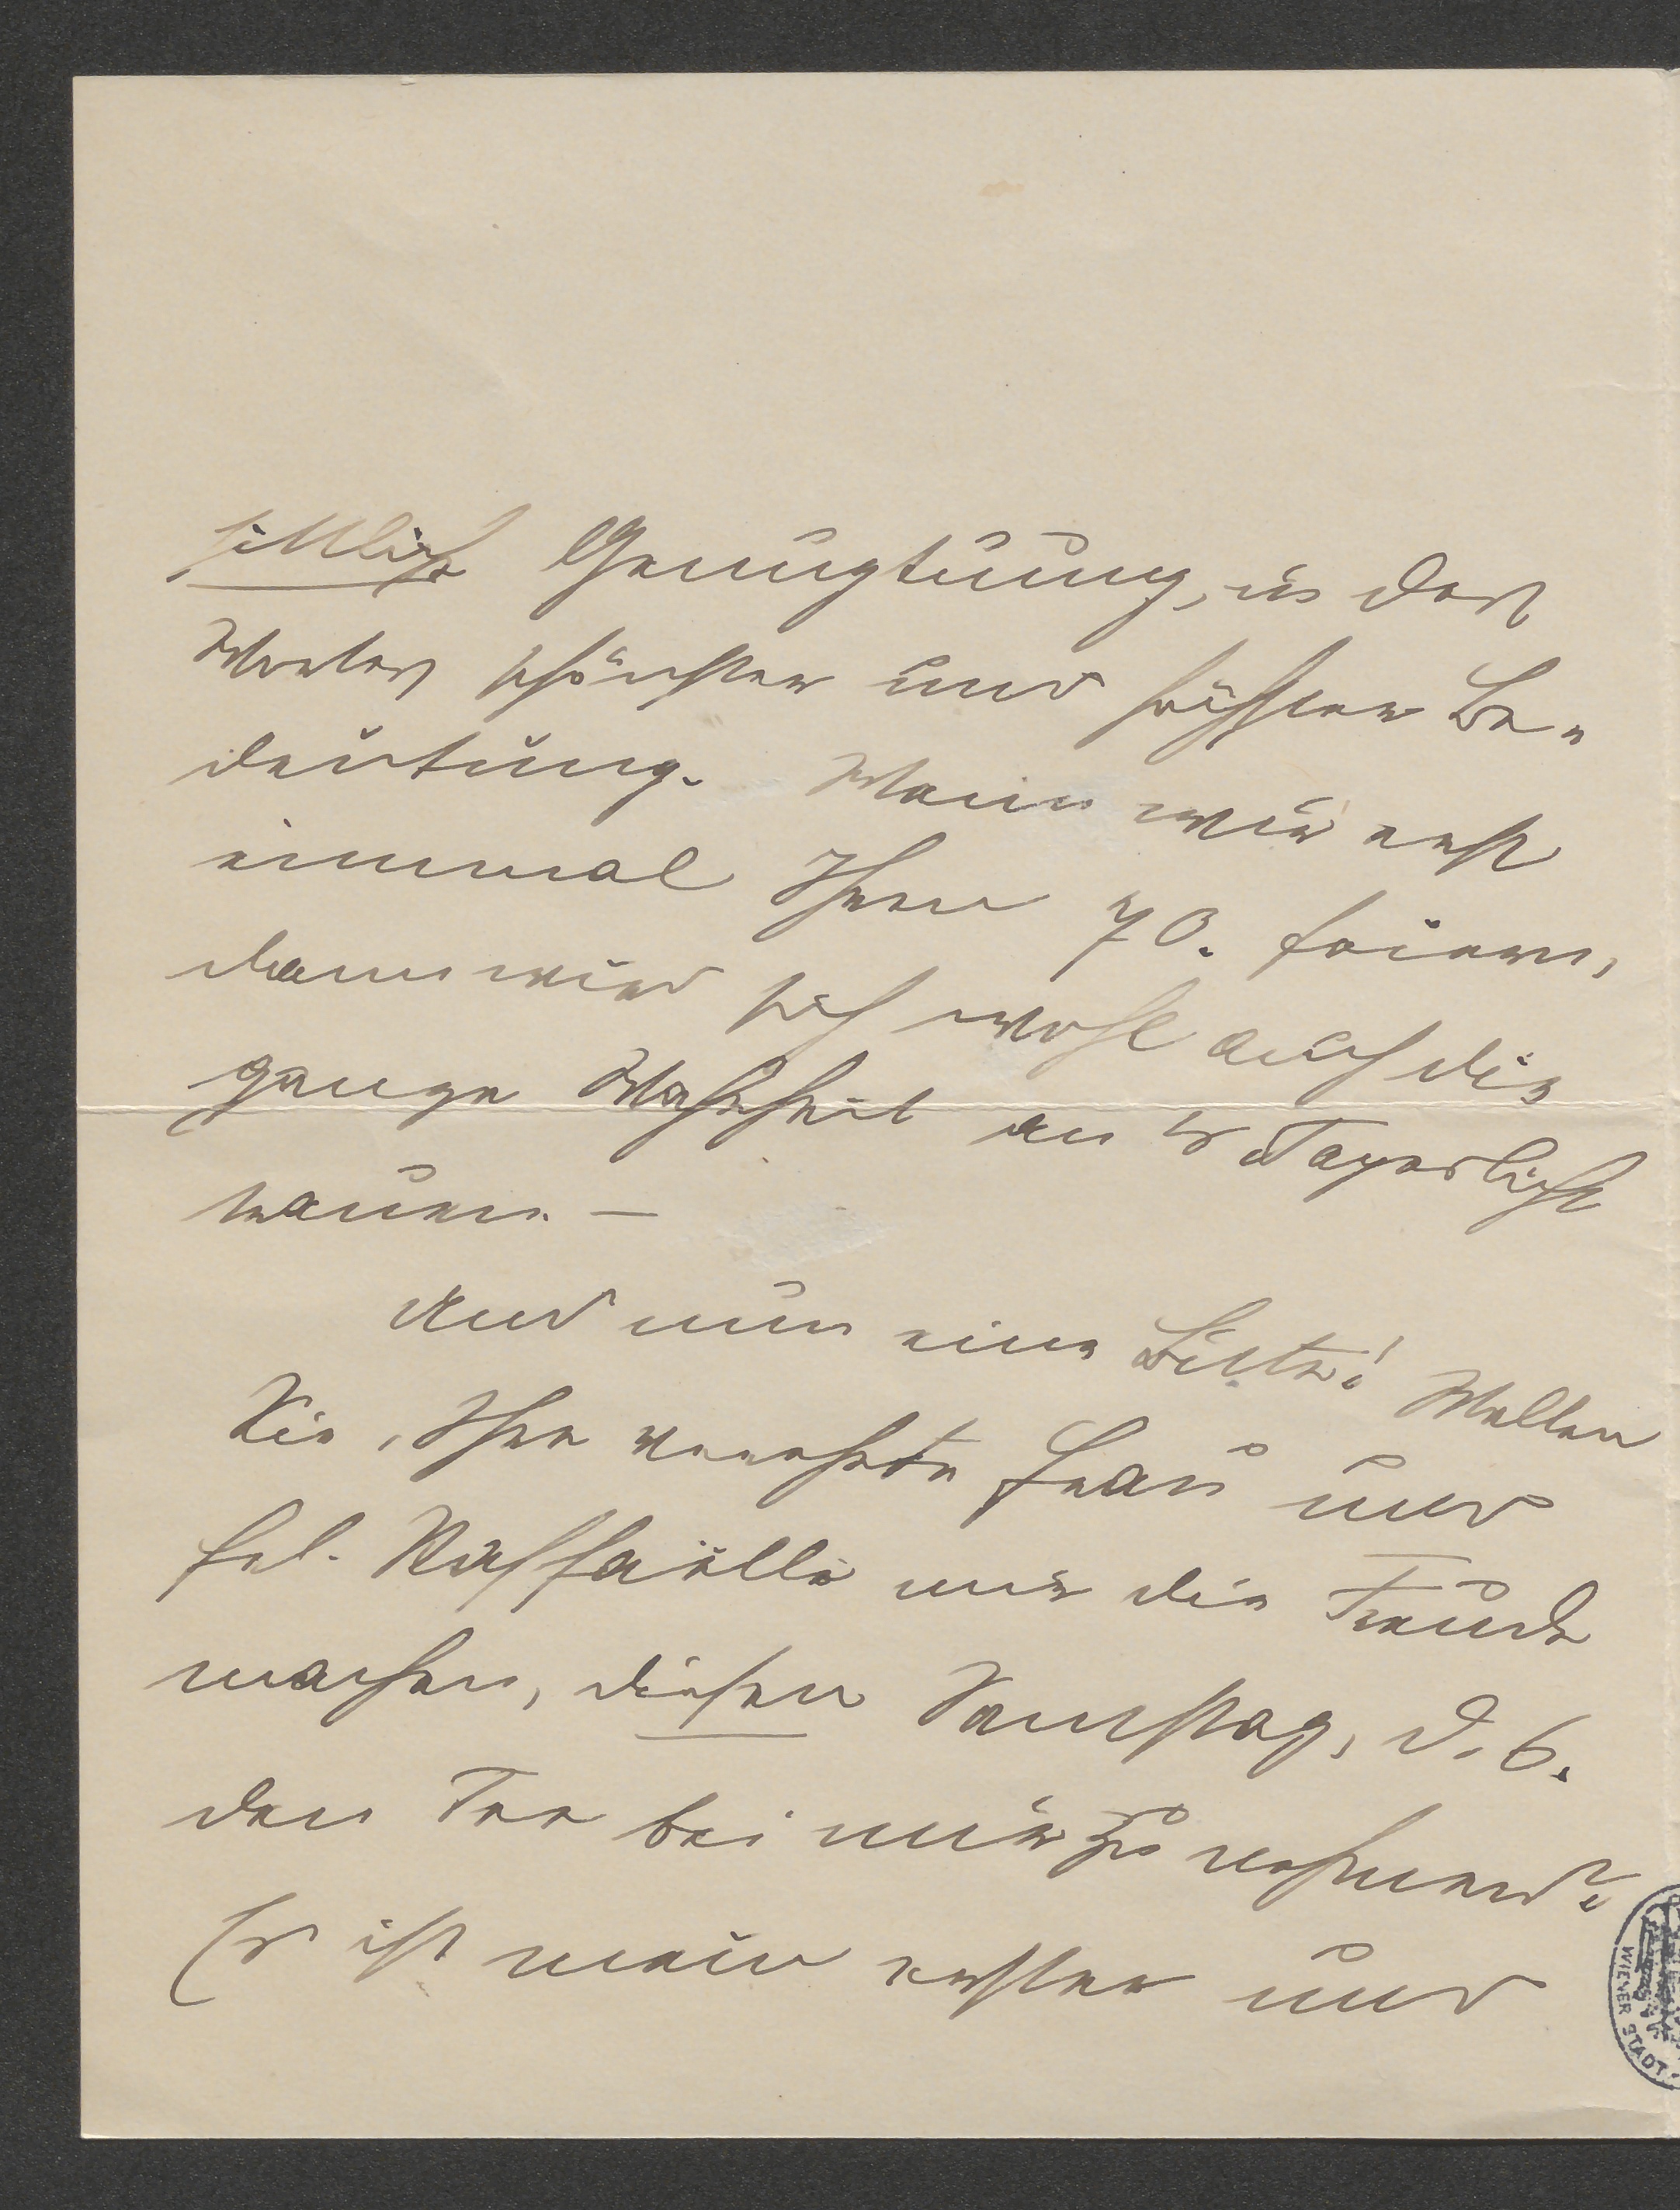 sittliche Genugtuung, in des
Wortes schönster und höchster Be-
deutung. Wenn wir erst
einmal Ihren 70. feiern,
dann wird sich wohl auch die
ganze Wahrheit an's Tageslicht
trauen. —
Und nun eine Bitte! Wollen
Sie, Ihre verehrte Frau und
Frl. Raffaëlla mir die Freude
machen, diesen Samstag, d. 6.
den Tee bei mir zu nehmen?
Es ist mein erster und
WIENER STADT